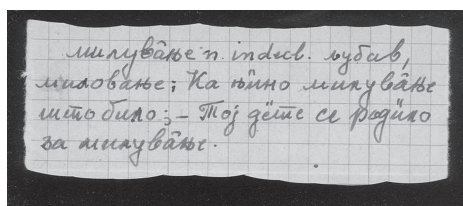 милува̂ње n. indecl. љубав,
миловање; На њи̂но милува̂ње
што било; – Тој дѐте се роди̂ло
за милува̂ње.